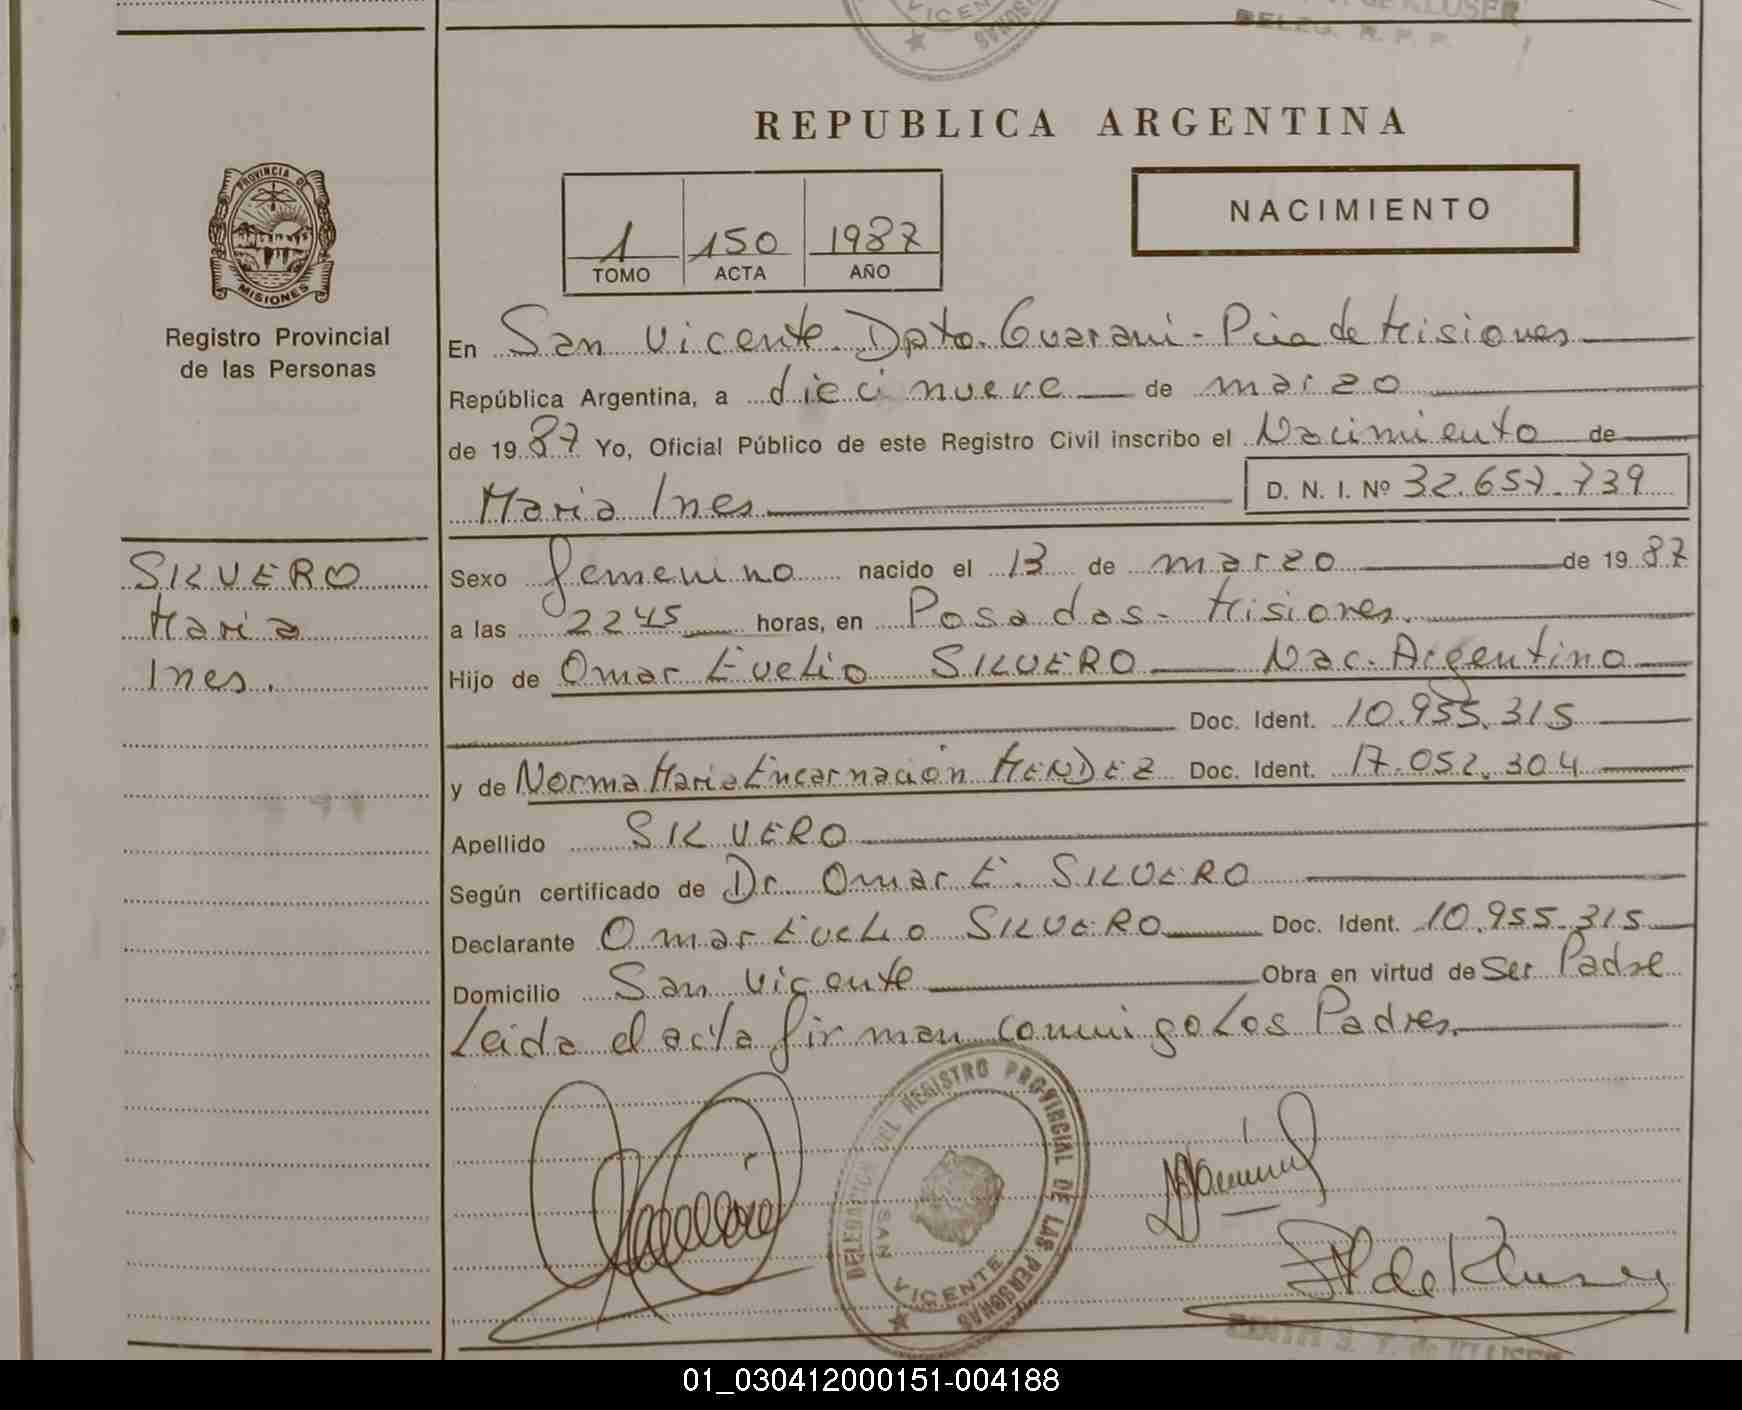 VICENTE
PERSONAS
de KLUSER
DELEG. R. P. P.
REPUBLICA ARGENTINA
PROVINCIA DE
MISIONES
NACIMIENTO
1 150 1987
TOMO ACTA AÑO
Registro Provincial
de las Personas
En San Vicente Dpto. Guarani - Pcia de Misiones
República Argentina, a dieci nueve de marzo
de 1987 Yo, Oficial Público de este Registro Civil inscribo el Nacimiento de
Maria Ines D. N. I. Nº 32.657.739
SILVERO
Maria
Ines.
Sexo femenino nacido el 13 de marzo de 1987
a las 2245 horas, en Posadas - Misiones.
Hijo de Omar Evelio SILVERO Nac. Argentino
Doc. Ident. 10.955.315
y de Norma Maria Encarnación MENDEZ Doc. Ident. 17.052.304
Apellido SILVERO
Según certificado de Dr. Omar E. SILVERO
Declarante Omar Evelio SILVERO Doc. Ident. 10.955.315
Domicilio San Vicente Obra en virtud de Ser Padre
Leida el acta firman conmigo Los Padres.
DELEGACION DEL REGISTRO PROVINCIAL DE LAS PERSONAS
SAN VICENTE
de Kluser
EDITH S. T. de KLUSER
01_030412000151-004188